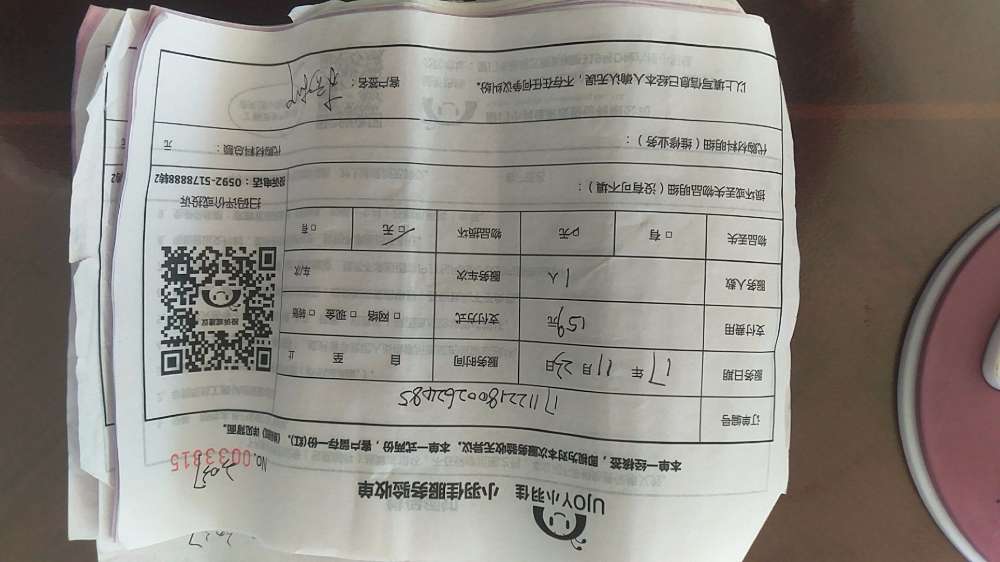 UJOY小羽佳 小羽佳服务验收单
NO.0033815
2037
本单一经核签，即视为对本次服务验收无异议。本单一式两份，客户留存一份(红)。(背面) 详见背面。
订单编号 171122180026 2485
服务日期 17年 11月 23日 服务时间 自 至 止
支付费用 159元 支付方式 □ 网络 □ 现金 □ 转账
服务人数 1人 服务车次 车/次
物品丢失 □ 有 □ 无 物品损坏 □ 无 □ 有
投诉或建议
扫码评价或投诉
投诉电话：0592-5178888转2
损坏或丢失物品明细（没有可不填）：
代购材料明细（维修业务）： 代购材料总额： 元
以上填写信息已经本人确认无误，不存在任何争议纠纷。 客户签名：
2037